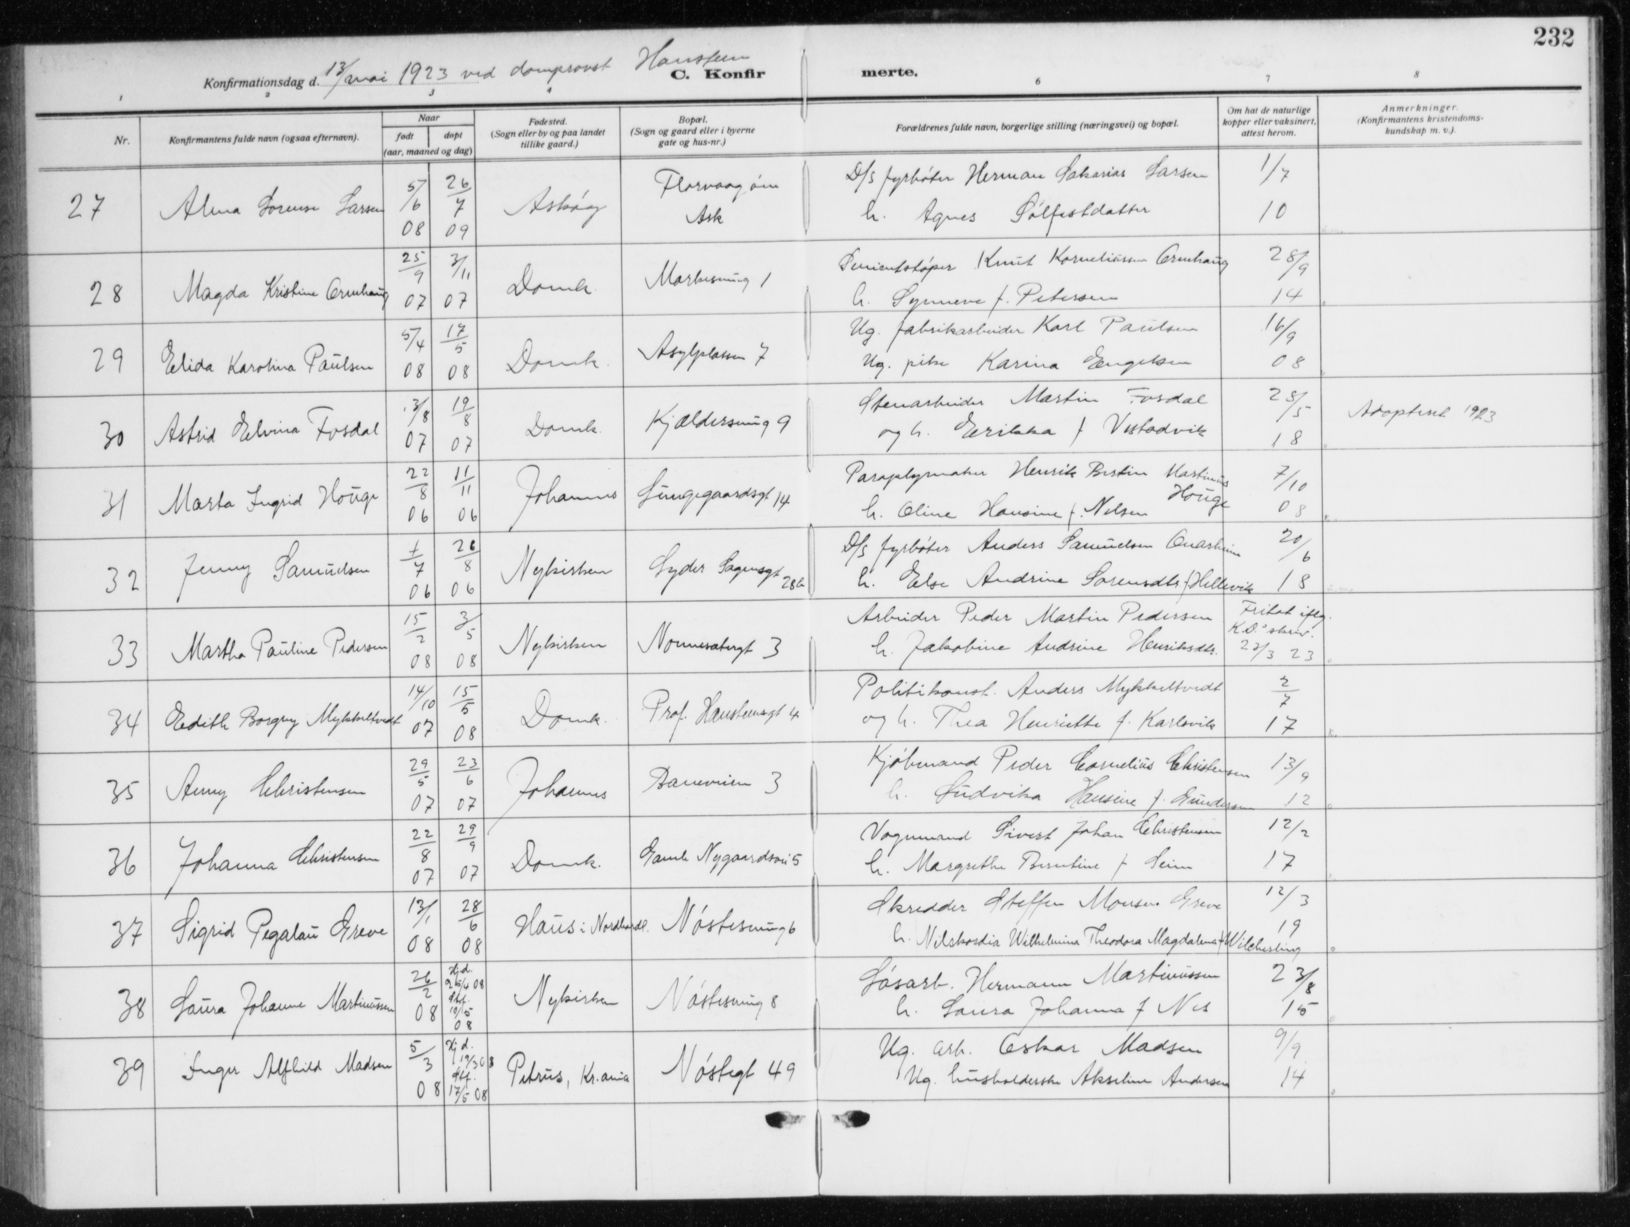 232
Konfirmationsdag d. 13/mai 1923 ved domprovst Hansteen
C. Konfirmerte.
1 2 3 4 6 7 8
Nr. Konfirmantens fulde navn (ogsaa efternavn). Naar født døpt (aar, maaned og dag) Fødested. (Sogn eller by og paa landet tillike gaard.) Bopæl. (Sogn og gaard eller i byerne gate og hus-nr.) Forældrenes fulde navn, borgerlige stilling (næringsvei) og bopæl. Om hat de naturlige kopper eller vaksinert, attest herom. Anmerkninger. (Konfirmantens kristendoms-kundskap m. v.).
27 Alma Lorense Larsen 5/6 08 26/7 09 Askøy Florvaag Ask D/s fyrbøter Herman Sakarias Larsen 1/7
h. Agnes Sølfestdatter 10
28 Magda Kristine Ormhaug 25/9 07 3/11 07 Domk. Marken 1 Knut Korneliussen Ormhaug 28/9
h. Synneve f. Petersen 14
29 Elida Karolina Paulsen 5/4 08 17/5 08 Domk. Asylplassen 7 Ug. fabrikarbeider Karl Paulsen 16/9
Ug. pike Karina Engelsen 08
30 Astrid Elvina Fosdal 13/8 07 19/8 07 Domk. Kjældersmug 9 Stenarbeider Martin Fosdal 28/5 Adoptert 1923
og h. Erikka f Vestadvik 18
31 Marta Ingrid Houge 22/8 06 11/11 06 Johannes Lungegaardsgt 14 Paraplymaker Henrik Bertin Martinus Houge 7/10
h. Oline Hansine f. Nilsen 08
32 Jenny Samuelsen 1/7 06 26/8 06 Nykirken Lyder Sagensgt 28b D/s fyrbøter Anders Samuelsen 20/6
h. Else Andrine Sorensdtr f Hellevik 18
33 Martha Pauline Pedersen 15/2 08 3/5 08 Nykirken Nonnesætergt 3 Arbeider Peder Martin Pedersen Fritat iflg.
h. Jakobine Andrine Henriksdtr. K.D.s skriv. 22/3 23
34 Edith Borgny Mykkeltvedt 14/10 07 15/5 08 Domk. Prof. Hansteensgt 4 Politikonst. Anders Mykkeltvedt 2/7
og h. Thea Henriette f. Karlsvik 17
35 Anny Christensen 29/5 07 23/6 07 Johannes Baneveien 3 Kjøbmand Peder Cornelius Christensen 13/9
h. Ludvika Hansine f. Gundersen 12
36 Johanna Christensen 22/8 07 29/9 07 Domk. Gamle Nygaardsvei 5 Vognmand Sivert Johan Christensen 12/2
h. Margrethe Berntine f Seim 17
37 Sigrid Pegalau Greve 13/1 08 28/6 08 Haus i Nordhordl. Nøstesmug 6 Skredder Steffen Monsen Greve 12/3
h. Wilhelmina Theodora Magdalena f 19
38 Laura Johanne Martinussen 26/2 08 Hj.d. 26/4 08 stf. 10/5 08 Nykirken Nøstesmug 8 Løsarb. Hermann Martinussen 23/8
h. Laura Johanna f Nes 15
39 Inger Alfhild Madsen 5/3 08 Hj.d. 19/3 08 stf. 17/5 08 Petrus, Kr.ania Nøstegt 49 Ug. arb. Oskar Madsen 9/9
Ug. husholderske Akseline Andersen 14